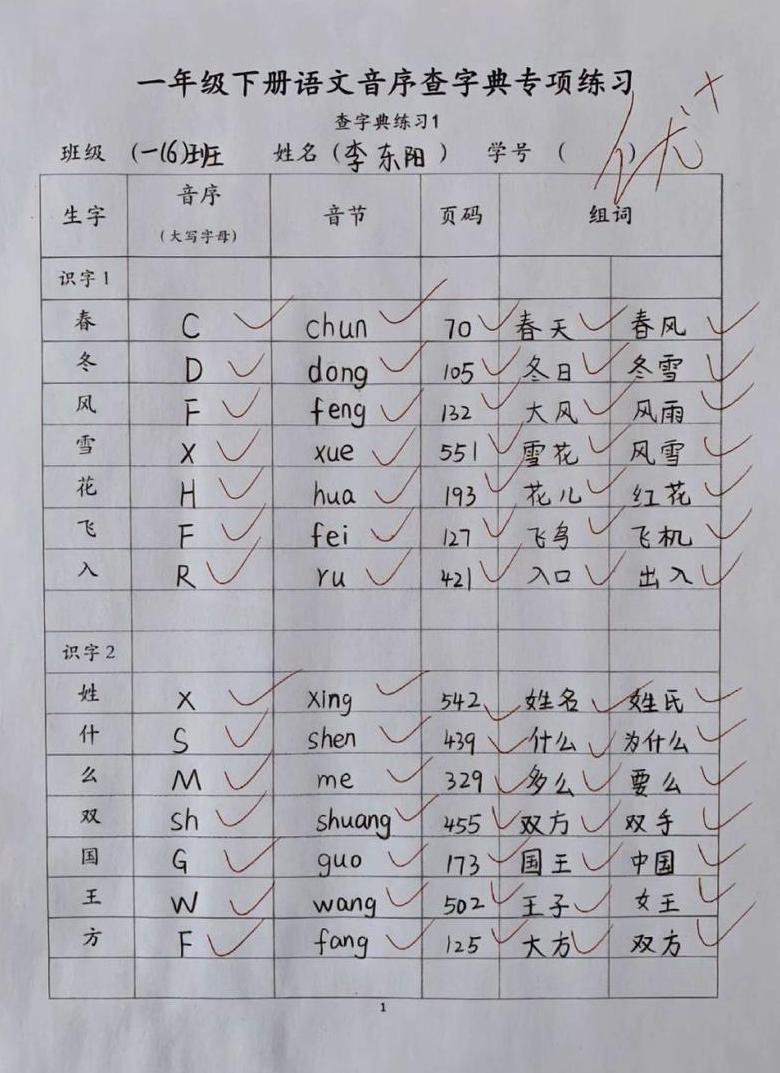 一年级下册语文音序查字典专项练习
查字典练习1
班级 (一(6)班 姓名 (李东阳) 学号 ( )
优+
生字 音序 (大写字母) 音节 页码 组词
识字1
春 C chun 70 春天 春风
冬 D dong 105 冬日 冬雪
风 F feng 132 大风 风雨
雪 X xue 551 雪花 风雪
花 H hua 193 花儿 红花
飞 F fei 127 飞鸟 飞机
入 R ru 421 入口 出入
识字2
姓 X xing 542 姓名 姓氏
什 S shen 439 什么 为什么
么 M me 329 多么 要么
双 sh shuang 455 双方 双手
国 G guo 173 国王 中国
王 W wang 502 王子 女王
方 F fang 125 大方 双方
1